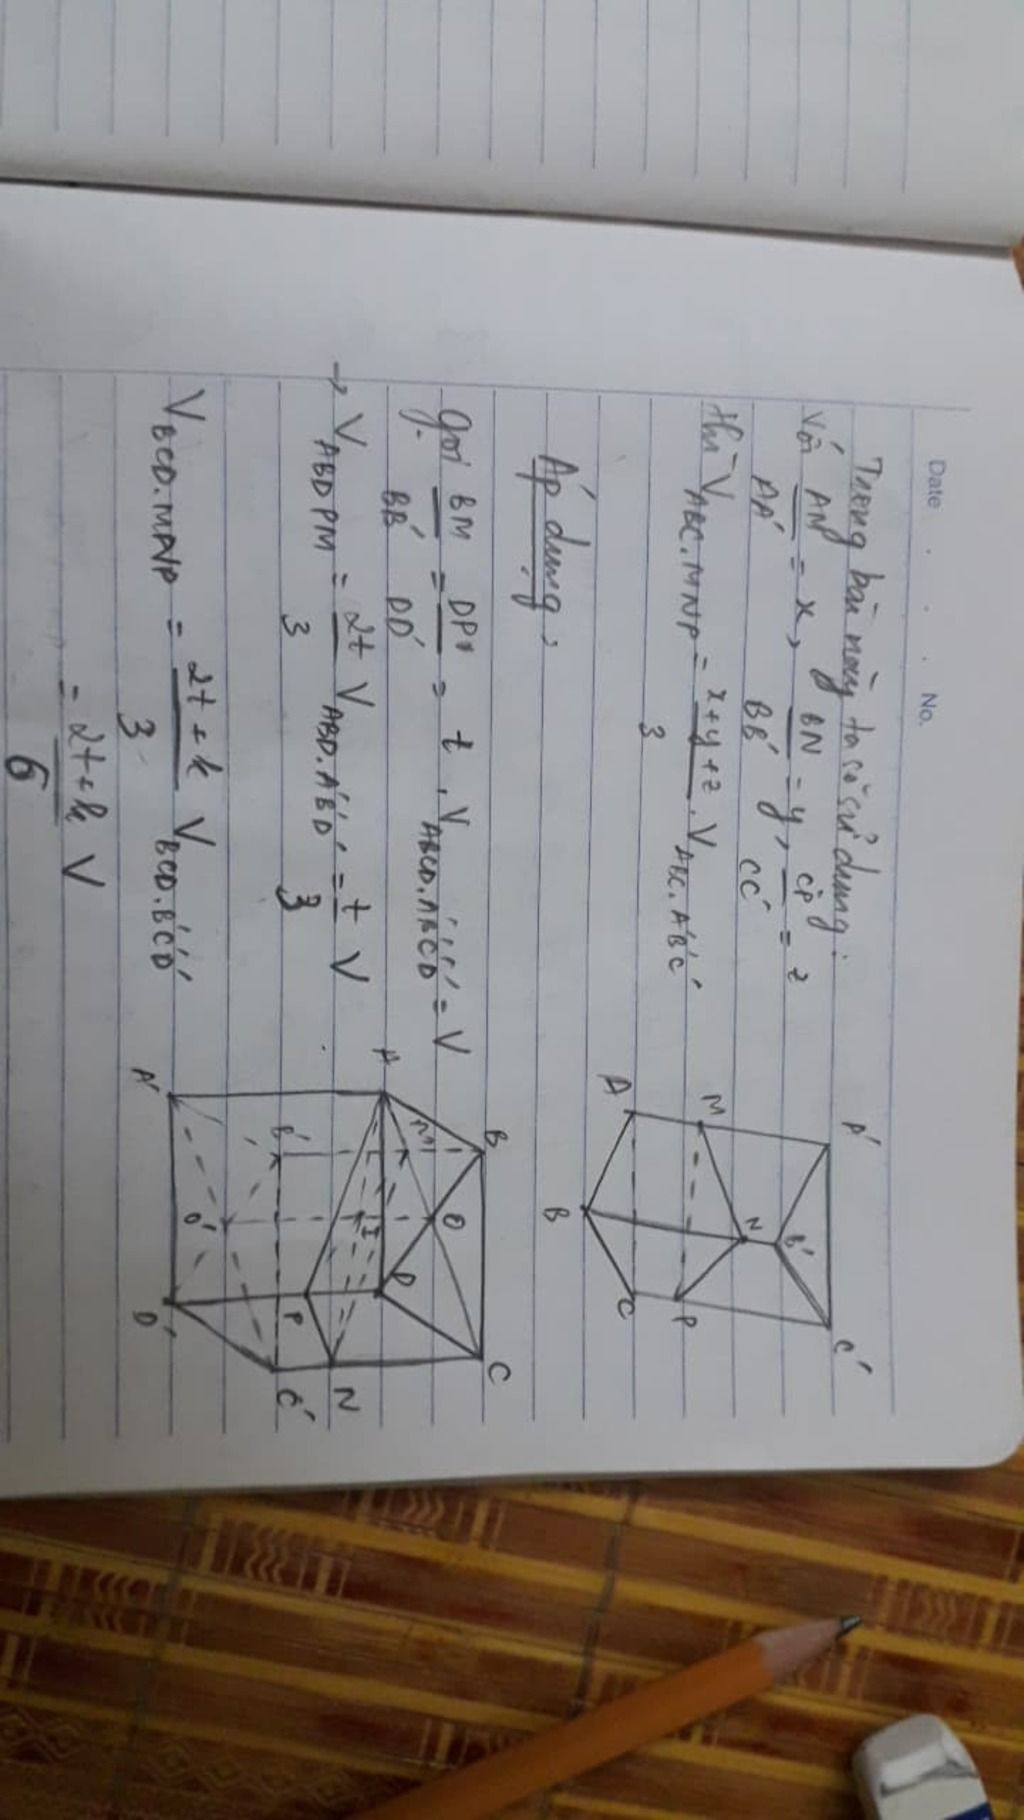 Date . . . No.
Trong bài này ta có sử dụng:
Với AM/AA' = x, BN/BB' = y, CP/CC' = z
thì V_ABC.MNP = x+y+z/3 . V_ABC.A'B'C'
A' B' C' M N P A B C
Áp dụng,
gọi BM/BB' = DP/DD' = t, V_ABCD.A'B'C'D' = V
→ V_ABDPM = 2t/3 V_ABD.A'B'D' = t/3 V
V_BCD.MNP = 2t+k/3 V_BCD.B'C'D'
= 2t+k/6 V
B C A O D M I N P B' C' O' A' D'